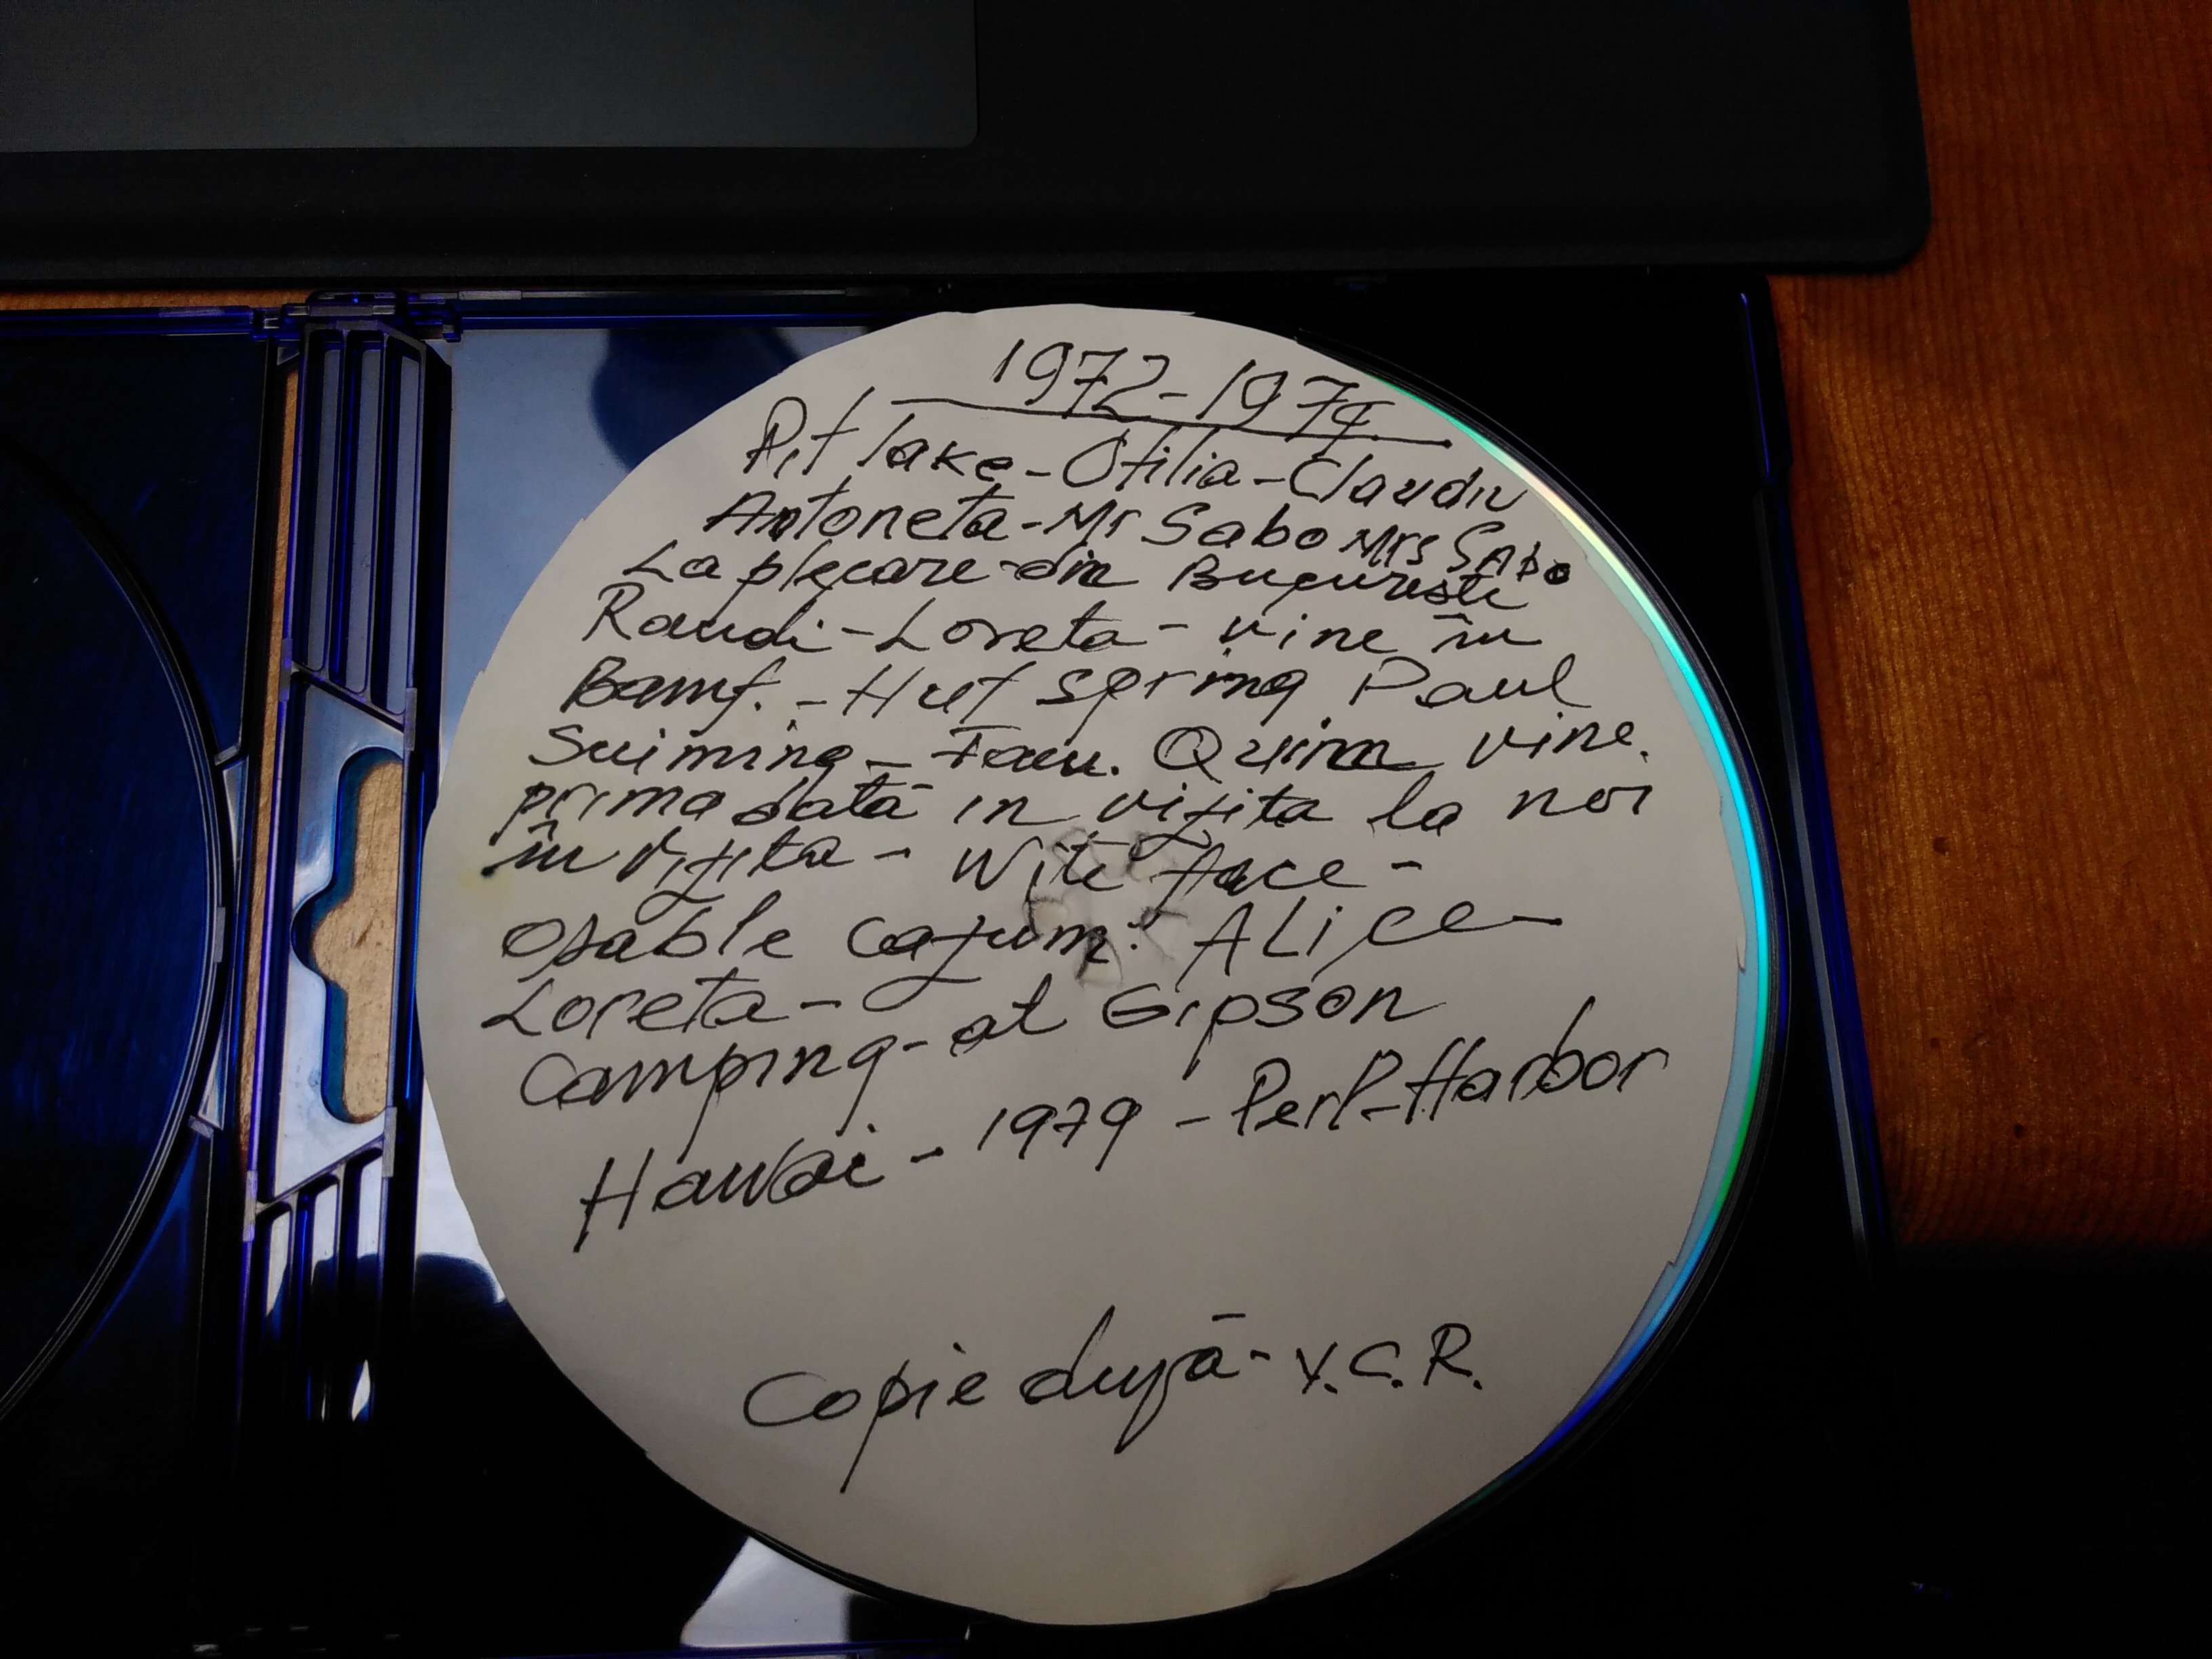 1972-1974
Pit lake-Otilia-Claudiu
Antoneta-Mr Sabo Mrs Sabo
La plecare-din Bucuresti
Raudi-Loreta-vine în
Bamf.-Hut spring Paul
Suiming-Fam. Quinn vine.
prima dată in vizita la noi
în vizita-Wite face-
Osable cazum: ALice
Loreta-
Camping-at Gipson
Hawai-1979-Perl-Harbor
Copie după-V.C.R.